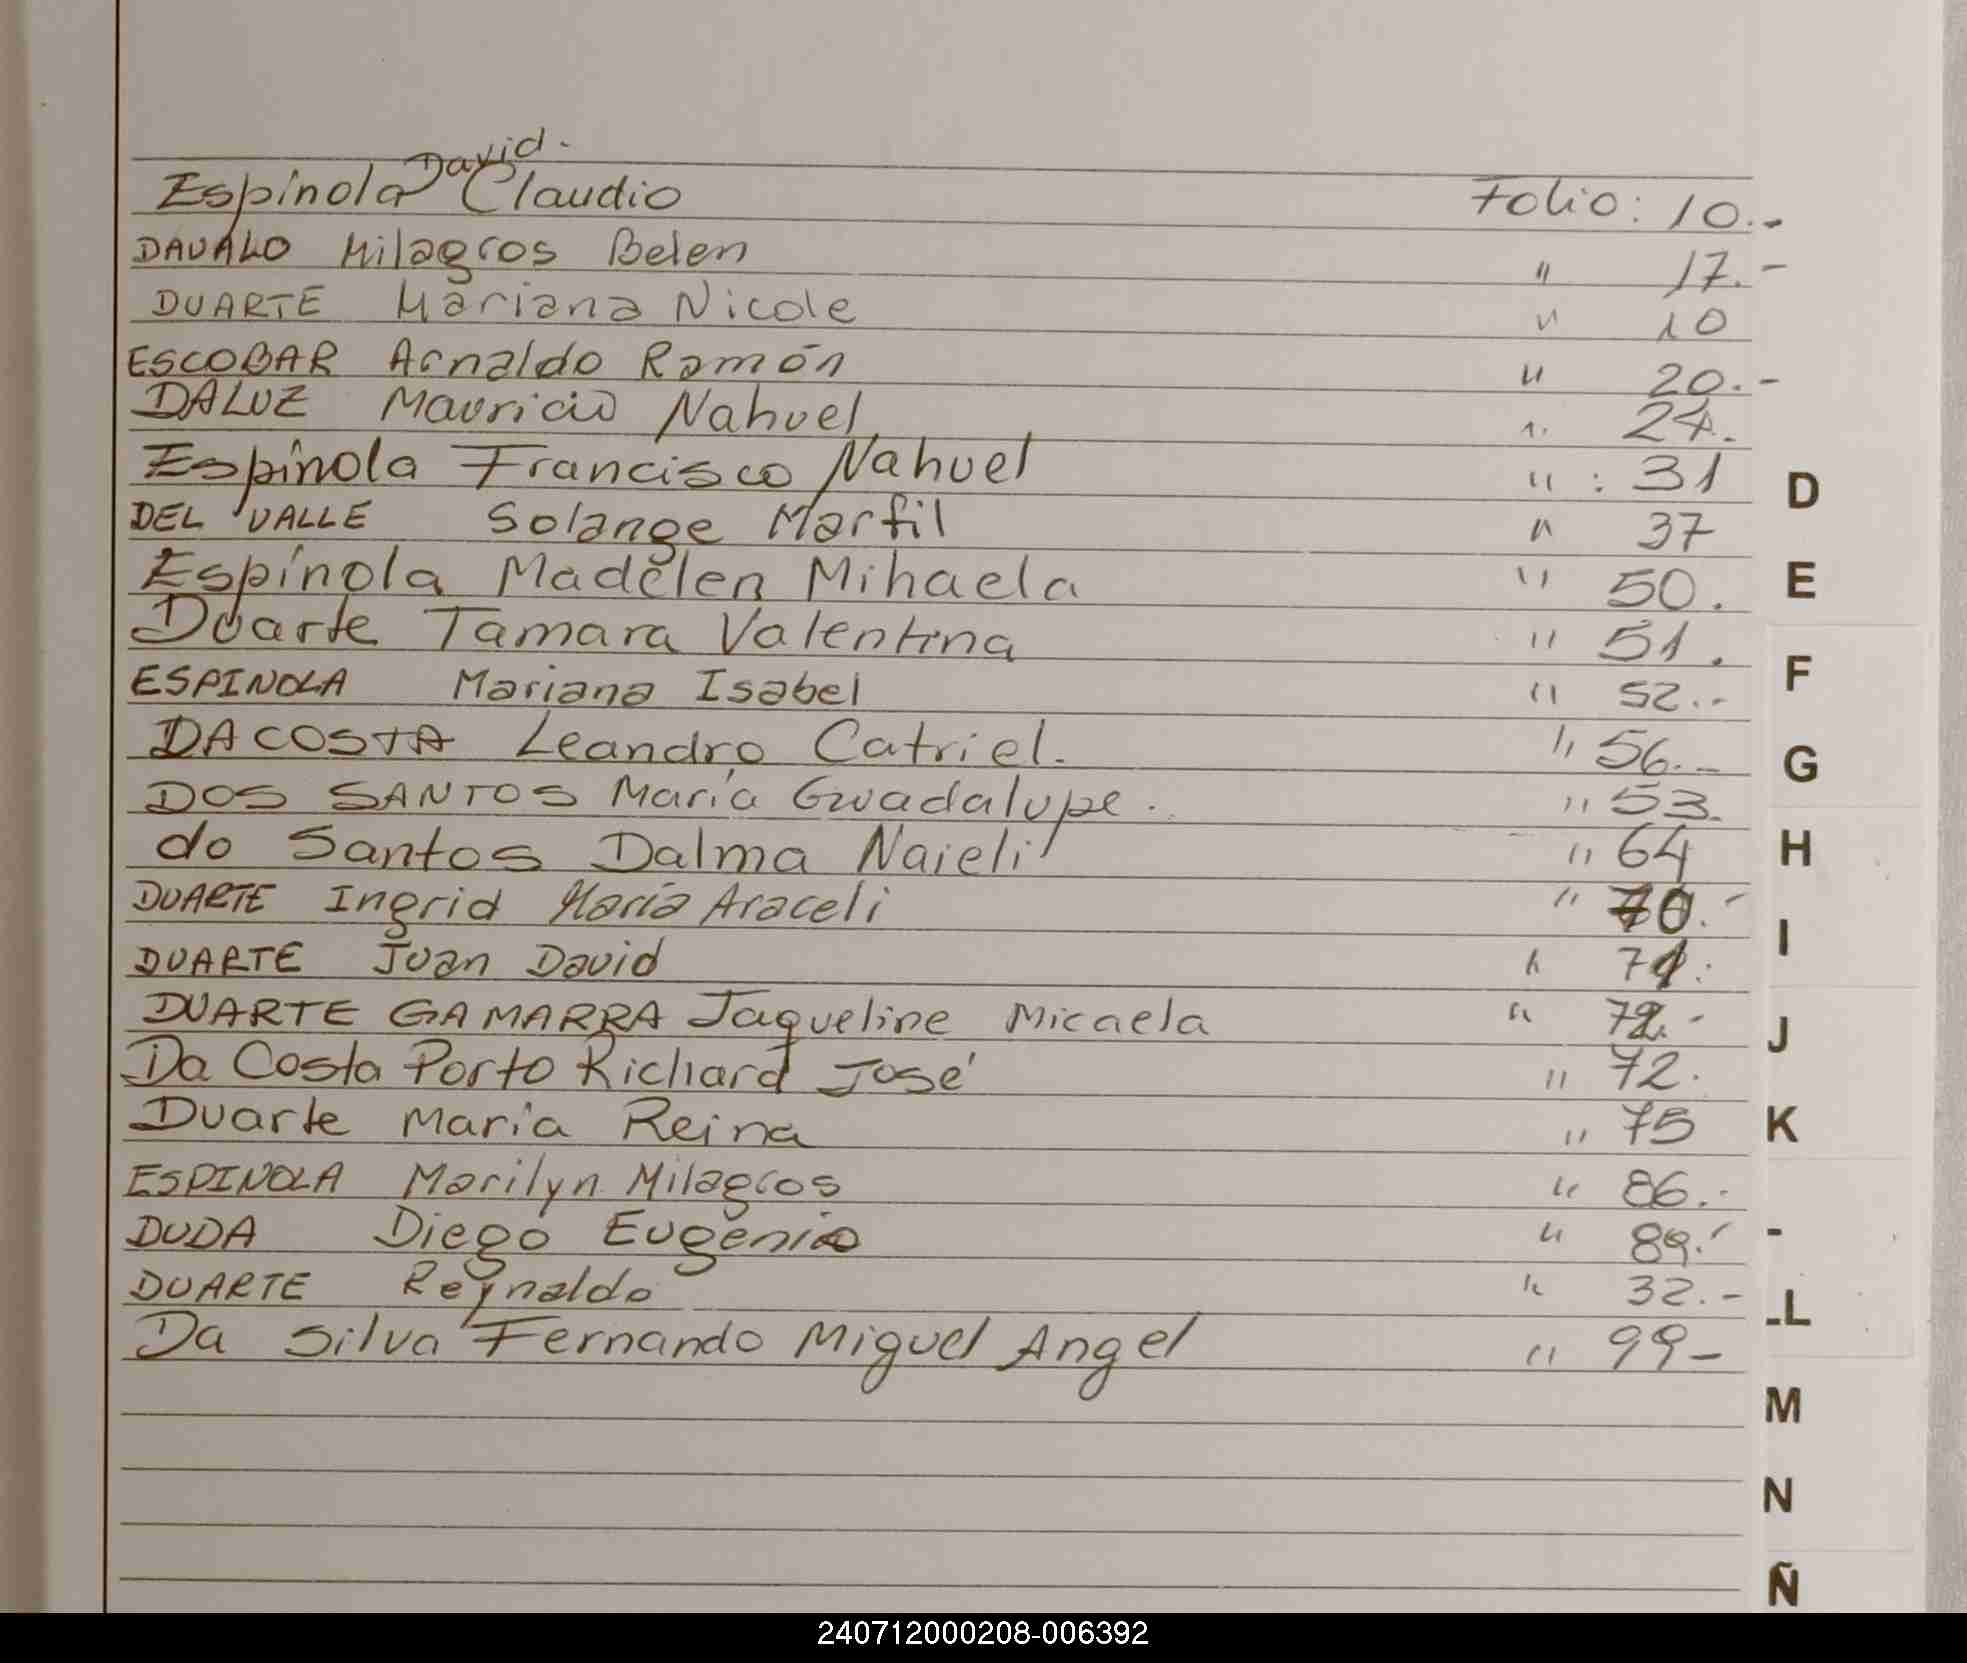 David.
Espínola Claudio Folio: 10.-
DAVALO Milagros Belen " 17.-
DUARTE Mariana Nicole " 10
ESCOBAR Arnaldo Ramón " 20.-
DALUZ Mauricio Nahuel " 24.
Espínola Francisco Nahuel " : 31
DEL VALLE Solange Marfil " 37
Espínola Madelen Mihaela " 50.
Duarte Tamara Valentina " 51.
ESPINOLA Mariana Isabel " 52.-
DACOSTA Leandro Catriel. " 56.-
DOS SANTOS María Guadalupe. " 53.
do Santos Dalma Naieli " 64
DUARTE Ingrid María Araceli " 70.-
DUARTE Juan David " 71.
DUARTE GAMARRA Jaqueline Micaela " 72.-
Da Costa Porto Richard José " 72.
Duarte María Reina " 75
ESPINOLA Marilyn Milagros " 86.-
DUDA Diego Eugenio " 89.-
DUARTE Reynaldo " 32.-
Da Silva Fernando Miguel Angel " 99-
D
E
F
G
H
I
J
K
-
-L
M
N
Ñ
240712000208-006392